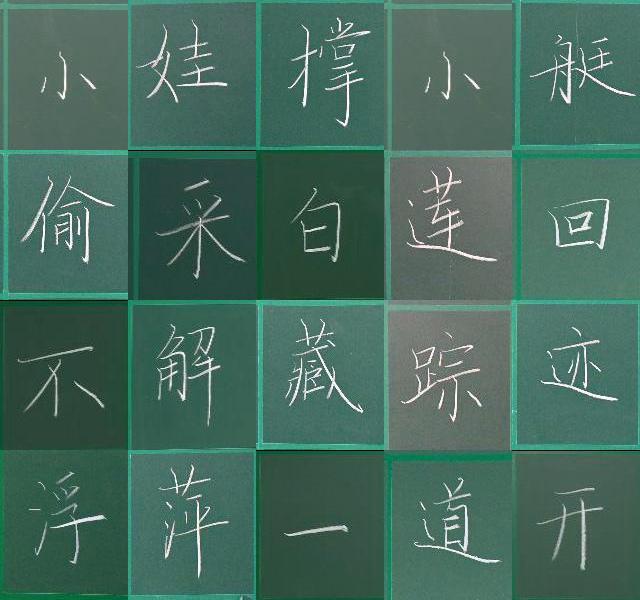 小娃撑小艇
偷采白莲回
不解藏踪迹
浮萍一道开